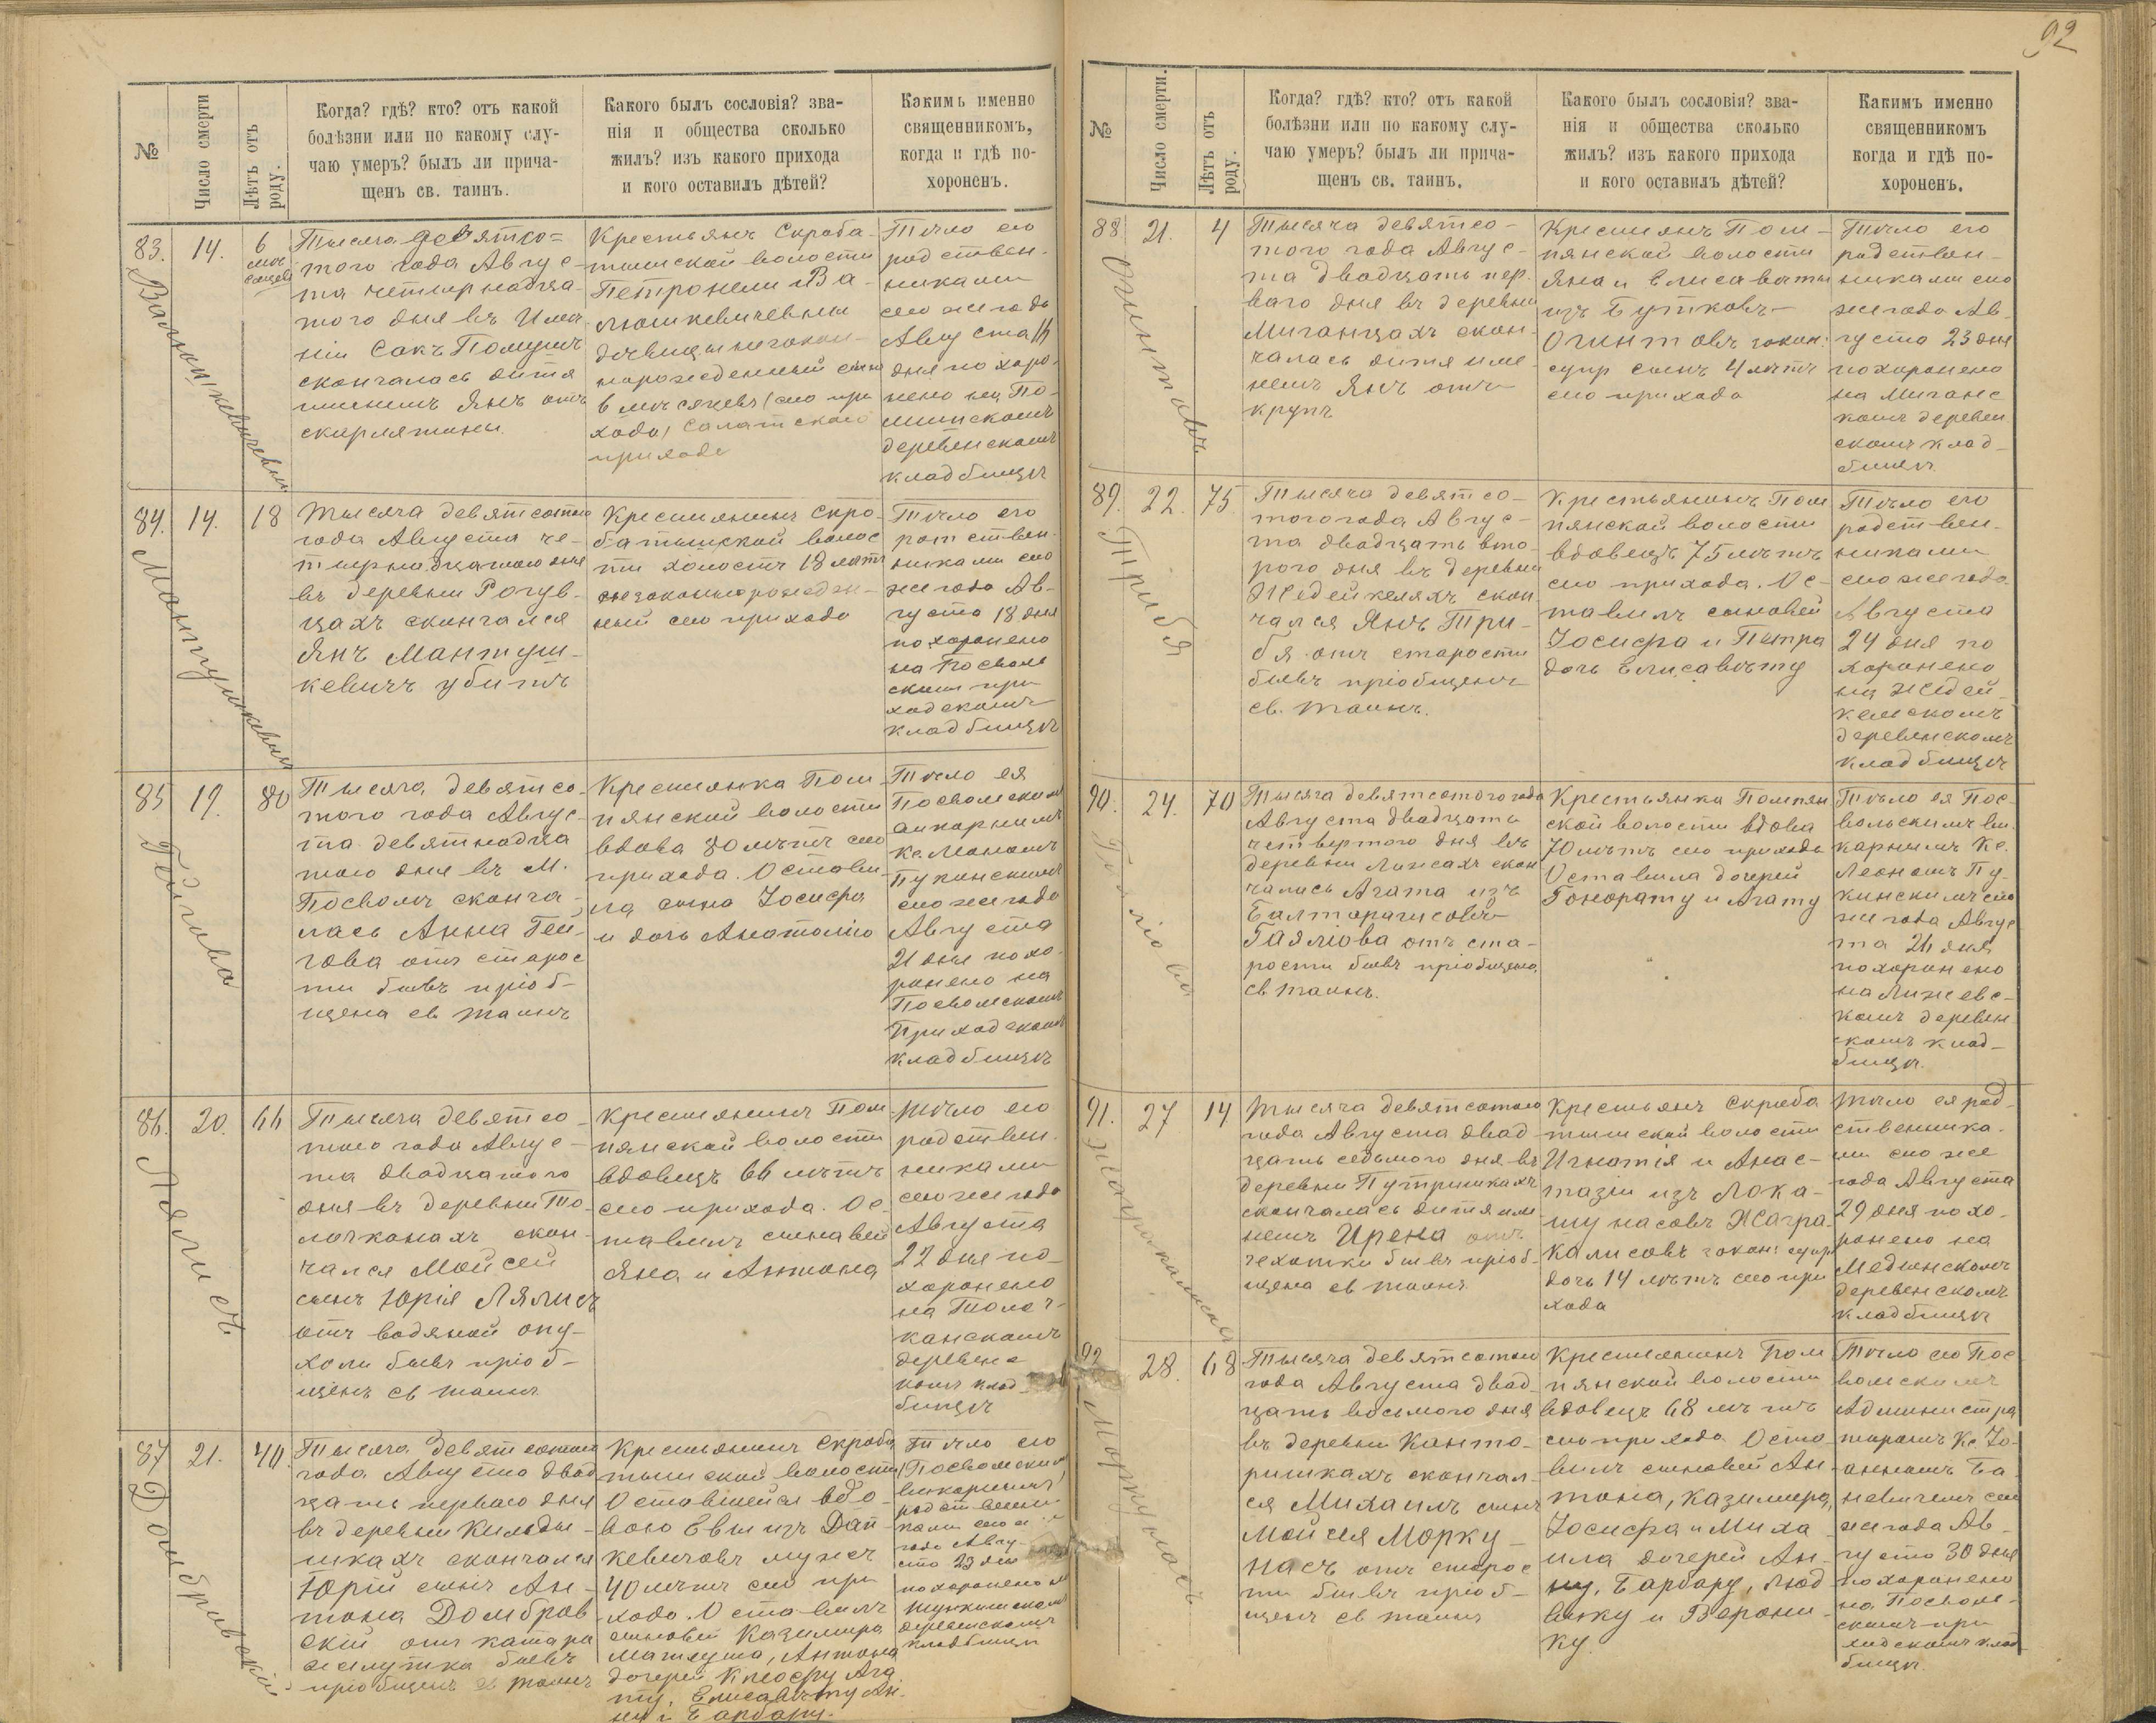 92
№
Число смерти
Лѣтъ отъ роду.
Когда? гдѣ? кто? отъ какой
болѣзни или по какому слу-
чаю умеръ? былъ ли прича-
щенъ св. таинъ.
Какого былъ сословія? зва-
нія и общества сколько
жилъ? изъ какого прихода
и кого оставилъ дѣтей?
Какимъ именно
священникомъ,
когда и гдѣ по-
хороненъ.
83.
14.
6
Тысяча девятсо=
того года Авгус-
та четырнадца-
того дня въ Име-
ніи Сокъ Помушъ
скончалась дитя
именемъ Янъ отъ
скарлятины
Крестьянъ Скроба-
тишской волости
Петронели Ва-
люшкевичевны
дѣвицы незакон-
норожденный сынъ
6 мѣсяцевъ (сего при
хода) Салатскаго
прихода
Тѣло его
родствен-
никами
сего же года
Августа 16
дня похоро-
нено на По-
мушскомъ
деревенскомъ
кладбищѣ
84.
14.
18
Мантушкевичъ
Тысяча девятсотого
года Августа че-
тырнадцатого дня
въ деревни Рагув-
цахъ скончался
Янъ Мантуш-
кевичъ убитъ
Крестьянинъ Скро-
батышской волос
ти холостъ 18 лѣтъ
незаконнорожден-
ный сего прихода
Тѣло его
родствен-
никами сего
же года Ав-
густа 18 дня
похоронено
на Посволь
скимъ при-
ходскомъ
кладбищѣ
85
19.
80
Гейгова
Тысяча девятсо-
того года Авгус-
та девятнадца
того дня въ М.
Посволѣ сконча-
лась Анна Гей-
гова отъ старос
ти бывъ пріоб-
щена св таинъ
Крестьянка Пом-
пянской волости
вдова 80 лѣтъ сего
прихода. Остави-
ла сына Іосифа
и дочь Анатолію
Тѣло ея
Посвольскимъ
викарнымъ
Кс. Леономъ
Пукинскимъ
сего же года
Августа
21 дня похо-
ронено на
Посвольскомъ
Приходскомъ
кладбищѣ
86.
20.
66
Лялисъ
Тысяча девятсо-
того года Авгус-
та двадцатого
дня въ деревни То-
лочканахъ скон-
чался Мойсей
сынъ Юрія Лялисъ
отъ водяной опу-
холи бывъ пріоб-
щенъ св таинъ
Крестьянинъ Пом
пянской волости
вдовецъ 66 лѣтъ
сего прихода. Ос-
тавилъ сыновей
Яна и Антона
Тѣло его
родствен-
никами
сего же года
Августа
22 дня по-
хоронено
на Толоч-
канскомъ
деревенс
комъ клад-
бищѣ
87
21.
40.
Домбровскій
Тысяча девятсотого
года Августа двад
цать первого дня
въ деревни Кильды-
шкахъ скончался
Юрій сынъ Ан-
тона Домбров-
скій отъ катара
желутка бывъ
пріобщенъ св таинъ
Крестьянинъ Скроба
тышской волости
Оставшейся вдо-
вою Евы изъ Дап-
кевичовъ мужъ
40 лѣтъ сего при
хода. Оставилъ
сыновей Казимира
Матеуша, Антона
дочерей Клеофу Ага
ту, Елисавѣту Ан-
ну и Барбару.
Тѣло его
(Посвольскимъ
викарнымъ)
родствен
никами сего же
года Авгу-
ста 23 дня
похоронено на
деревенскомъ
кладбищѣ
№
Число смерти.
Лѣтъ отъ роду.
Когда? гдѣ? кто? отъ какой
болѣзни или по какому слу-
чаю умеръ? былъ ли прича-
щенъ св. таинъ.
Какого былъ сословія? зва-
нія и общества сколько
жилъ? изъ какого прихода
и кого оставилъ дѣтей?
Какимъ именно
священникомъ
когда и гдѣ по-
хороненъ.
88
21.
4
Огинтовъ
Тысяча девятсо-
того года Авгус-
та двадцать пер-
ваго дня въ деревни
Миганцахъ скон-
чалась дитя име
немъ Янъ отъ
крупъ
Крестьянъ Пом-
пянской волости
Яна и Елисаветы
изъ Бутковъ
Огинтовъ закон:
супр сынъ 4 лѣтъ
сего прихода
Тѣло его
родствен-
никами сего
же года Ав-
густа 23 дня
похоронено
на Миганс
комъ деревен
скомъ клад-
бищѣ.
89.
22.
75.
Трибя
Тысяча девятсо-
того года Авгус-
та двадцать вто-
рого дня въ деревни
Жедейкеляхъ скон
чался Янъ Три-
бя отъ старости
бывъ пріобщенъ
св. таинъ.
Крестьянинъ Пом
пянской волости
вдовецъ 75 лѣтъ
сего прихода. Ос-
тавилъ сыновей
Іосифа и Петра
дочь Елисавѣту
Тѣло его
родствен-
никами
сего же года
Августа
24 дня по
хоронено
на Жедей-
кельскомъ
деревенскомъ
кладбищѣ
90.
24.
70
Гаяліова
Тысяча девятсотого года
Августа двадцать
четвертого дня въ
деревни Лижахъ скон
чалась Агата изъ
Балтарагисовъ
Гаяліова отъ ста-
рости бывъ пріобщена
св таинъ.
Крестьянка Помпян
ской волости вдова
70 лѣтъ сего прихода
Оставила дочерей
Гонорату и Агату
Тѣло ея Пос-
вольскимъ ви-
карнымъ Кс.
Леономъ Пу-
кинскимъ сего
же года Авгус
та 26 дня
похоронено
на Лижевс-
комъ деревен-
скомъ клад-
бищѣ.
91.
27
14
Жагракалисовъ
Тысяча девятсотого
года Августа двад
цать седьмого дня въ
деревни Путришкахъ
скончалась дитя име
немъ Ирена отъ
чехотки бывъ пріоб-
щена св таинъ
Крестьянъ Скроба
тышской волости
Игнатія и Анас-
тазіи изъ Лока-
шунасовъ Жагра-
калисовъ закон: супр:
дочь 14 лѣтъ сего при
хода
Тѣло ея род-
ственника-
ми сего же
года Августа
29 дня похо-
ронено на
деревенскомъ
кладбищѣ
92
28.
68
Моркунасъ
Тысяча девятсотого
года Августа двад-
цать восьмого дня
въ деревни Канто-
ришкахъ скончал-
ся Михаилъ сынъ
Мойсея Морку-
насъ отъ старос
ти бывъ пріоб-
щенъ св таинъ
Крестьянинъ Пом
пянской волости
вдовецъ 68 лѣтъ
сего прихода Оста-
вилъ сыновей Ан-
тона, Казимира,
Іосифа и Миха
ила дочерей Ан-
ну, Барбару, Люд
вику и Верони-
ку.
Тѣло его Пос
вольскимъ
Администра
торомъ Кс Іо-
анномъ Ба-
невичемъ сего
же года Ав-
густа 30 дня
похоронено
на Посволь-
скомъ при-
ходскомъ клад-
бищѣ.